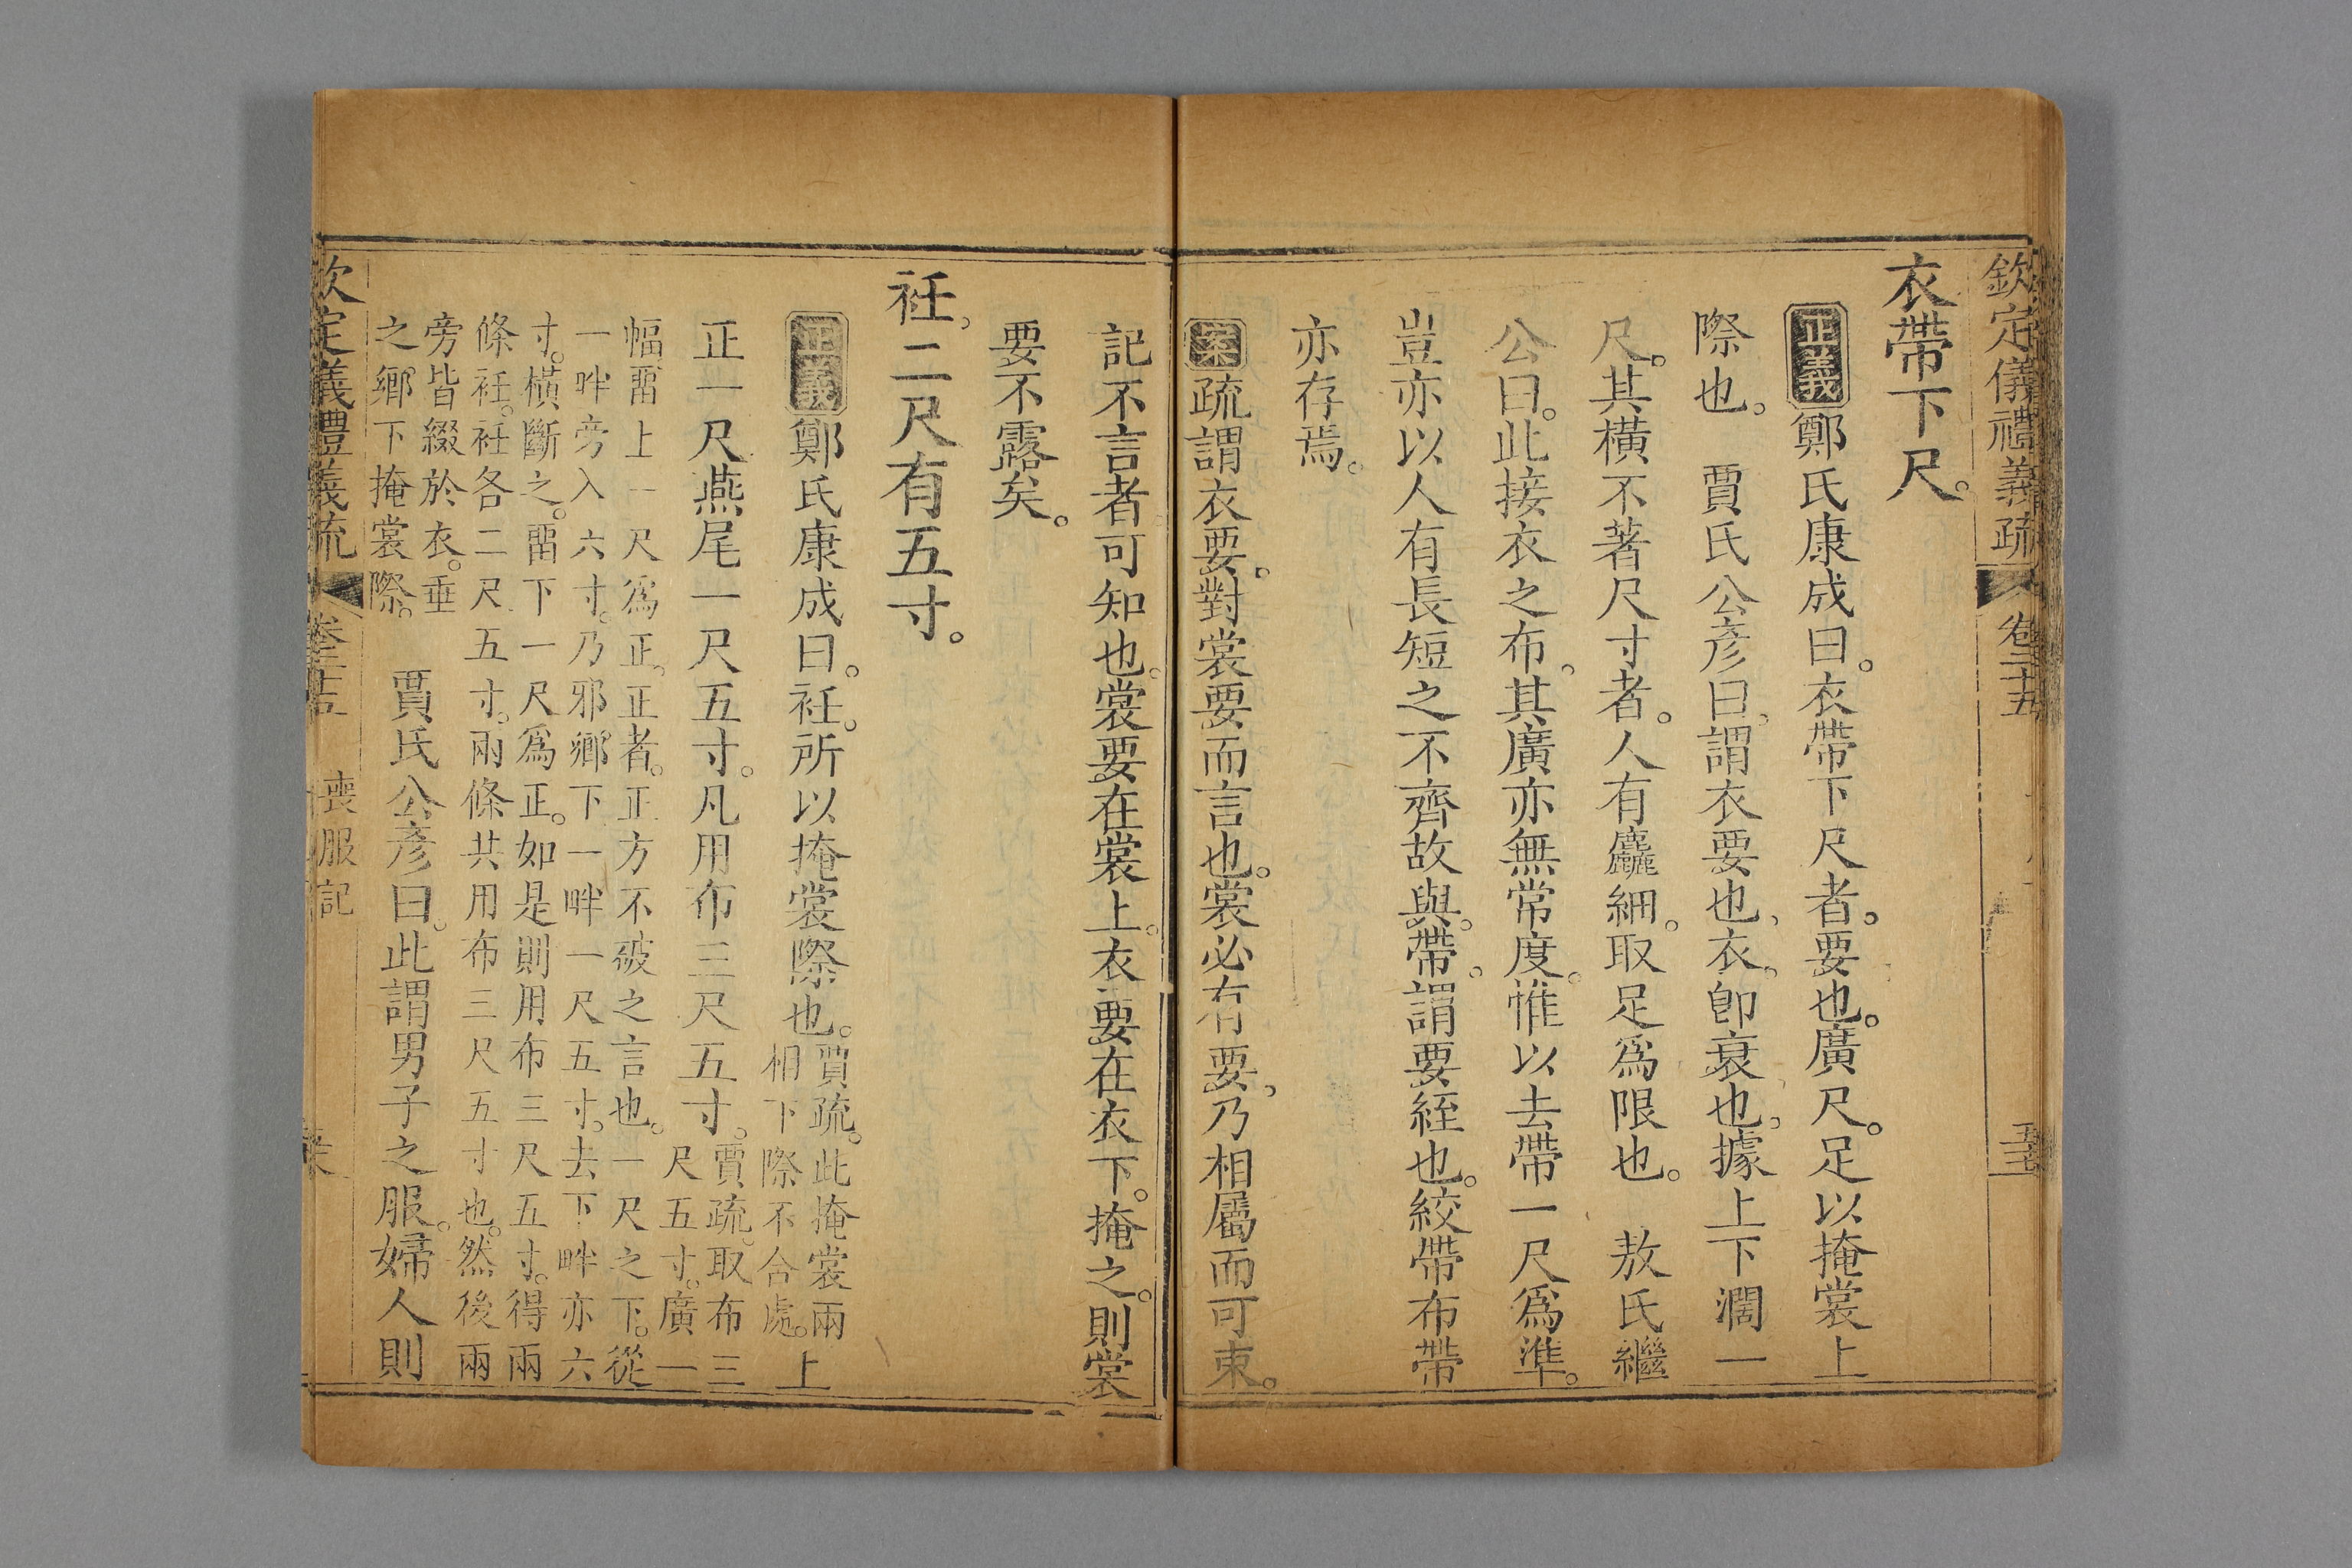 欽定儀禮義疏 卷二十五
衣帶下尺。
正義鄭氏康成曰。衣帶下尺者。要也。廣尺。足以掩裳上
際也。 賈氏公彥曰。謂衣要也、衣。卽衰也。據上下濶一
尺。其橫不著尺寸者。人有麤細。取足爲限也。 敖氏繼
公曰。此接衣之布。其廣亦無常度。惟以去帶一尺爲準。
豈亦以人有長短之不齊故與。帶。謂要絰也。絞帶布帶
亦存焉。
案疏謂衣要。對裳要而言也。裳必有要、乃相屬而可束。
記不言者可知也。裳要在裳上。衣要在衣下。掩之。則裳
要不露矣。
衽、二尺有五寸。
正義鄭氏康成曰。衽。所以掩裳際也。賈疏。此掩裳兩
相下際不合處。上
正一尺燕尾一尺五寸。凡用布三尺五寸。賈疏。取布三
尺五寸。廣一
幅。畱上一尺爲正。正者。正方不破之言也。一尺之下。從
一畔旁入六寸。乃邪鄉下一畔一尺五寸。去下畔亦六
寸。橫斷之。畱下一尺爲正。如是則用布三尺五寸。得兩
條衽。衽各二尺五寸。兩條共用布三尺五寸也。然後兩
旁皆綴於衣。垂
之鄉下掩裳際。 賈氏公彥曰。此謂男子之服。婦人則
欽定義禮義疏 卷二十五 喪服記